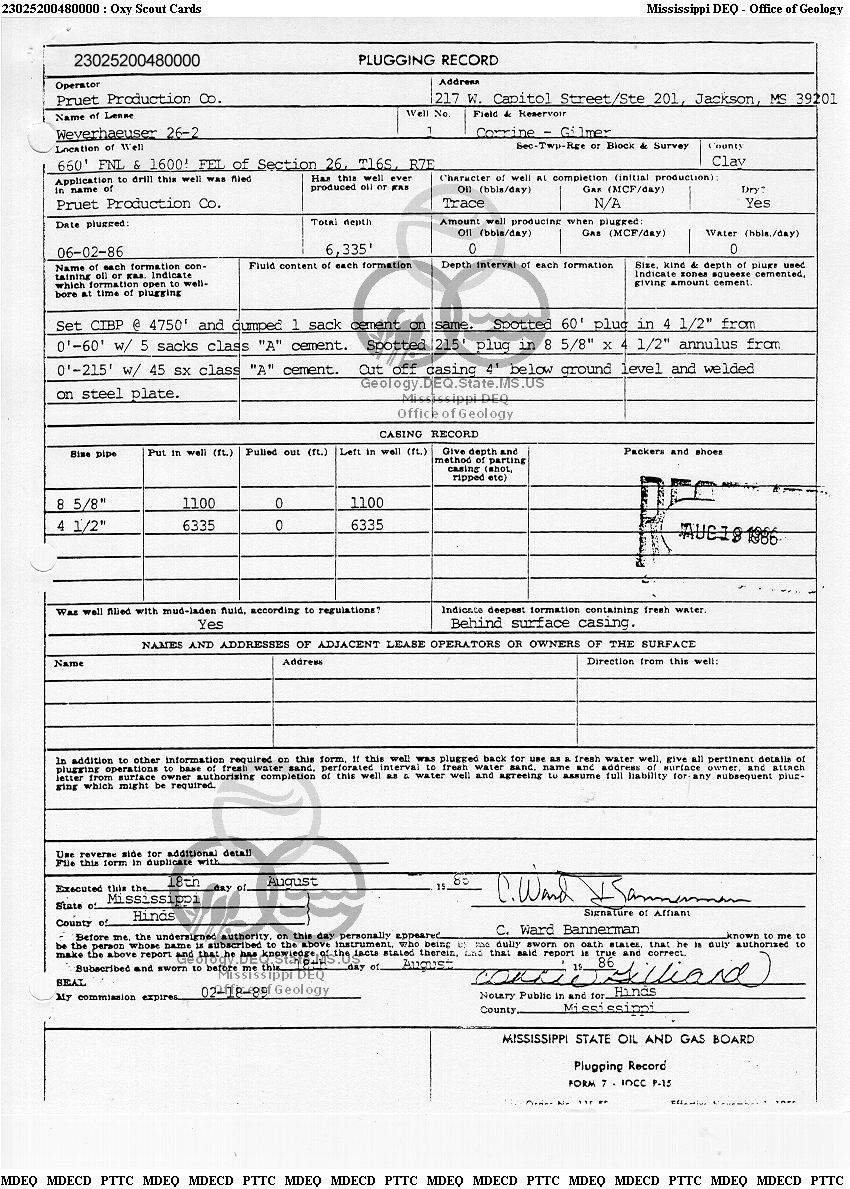 23025200480000 : Oxy Scout Cards Mississippi DEQ - Office of Geology
23025200480000 PLUGGING RECORD
Operator Address
Pruet Production Co. 217 W. Capitol Street/Ste 201, Jackson, MS 39201
Name of Lease Well No. Field & Reservoir
Weyerhaeuser 26-2 1 Corrine - Gilmer
Location of Well Sec-Twp-Rge or Block & Survey County
660' FNL & 1600' FEL of Section 26, T16S, R7E Clay
Application to drill this well was filed in name of Has this well ever produced oil or gas Character of well at completion (initial production):
Oil (bbls/day) Gas (MCF/day) Dry?
Pruet Production Co. Trace N/A Yes
Date plugged: Total depth Amount well producing when plugged:
Oil (bbls/day) Gas (MCF/day) Water (bbls./day)
06-02-86 6,335' 0 0
Name of each formation con- Fluid content of each formation Depth interval of each formation Size, kind & depth of plugs used
taining oil or gas. Indicate Indicate zones squeeze cemented,
which formation open to well- giving amount cement.
bore at time of plugging
Set CIBP @ 4750' and dumped 1 sack cement on same. Spotted 60' plug in 4 1/2" from
0'-60' w/ 5 sacks class "A" cement. Spotted 215' plug in 8 5/8" x 4 1/2" annulus from
0'-215' w/ 45 sx class "A" cement. Cut off casing 4' below ground level and welded
on steel plate.
Geology.DEQ.State.MS.US
Mississippi DEQ
Office of Geology
CASING RECORD
Size pipe Put in well (ft.) Pulled out (ft.) Left in well (ft.) Give depth and method of parting casing (shot, ripped etc) Packers and shoes
8 5/8" 1100 0 1100
4 1/2" 6335 0 6335
AUG 19 1986
Was well filled with mud-laden fluid, according to regulations? Indicate deepest formation containing fresh water.
Yes Behind surface casing.
NAMES AND ADDRESSES OF ADJACENT LEASE OPERATORS OR OWNERS OF THE SURFACE
Name Address Direction from this well:
In addition to other information required on this form, if this well was plugged back for use as a fresh water well, give all pertinent details of
plugging operations to base of fresh water sand, perforated interval to fresh water sand, name and address of surface owner, and attach
letter from surface owner authorizing completion of this well as a water well and agreeing to assume full liability for any subsequent plug-
ging which might be required.
Use reverse side for additional detail
File this form in duplicate with
Executed this the 18th day of August , 19 86
State of Mississippi C. Ward Bannerman
Signature of Affiant
County of Hinds
Before me, the undersigned authority, on this day personally appeared C. Ward Bannerman known to me to
be the person whose name is subscribed to the above instrument, who being by me dully sworn on oath states, that he is duly authorized to
make the above report and that he has knowledge of the facts stated therein, and that said report is true and correct.
Subscribed and sworn to before me this 18th day of August , 19 86
Geology.DEQ.State.MS.US
Mississippi DEQ
Office of Geology
SEAL
My commission expires 02-18-89 Notary Public in and for Hinds
County, Mississippi
MISSISSIPPI STATE OIL AND GAS BOARD
Plugging Record
FORM 7 - IOCC P-15
MDEQ MDECD PTTC MDEQ MDECD PTTC MDEQ MDECD PTTC MDEQ MDECD PTTC MDEQ MDECD PTTC MDEQ MDECD PTTC